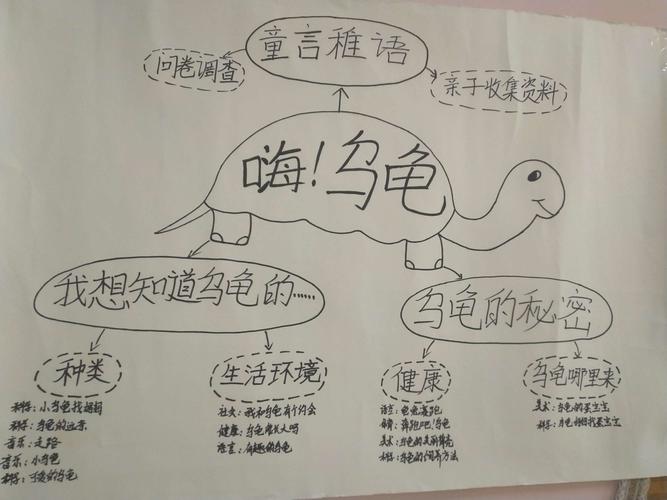 童言稚语
问卷调查
亲子收集资料
嗨!乌龟
我想知道乌龟的……
乌龟的秘密
种类
生活环境
健康
乌龟哪里来
科学:小乌龟找妈妈
科学:乌龟的远亲
音乐:走路
音乐:小乌龟
科学:可爱的乌龟
社会:我和乌龟有个约会
健康:乌龟爬大山吗
语言:有趣的乌龟
语言:龟兔赛跑
健康:奔跑吧!乌龟
美术:乌龟的美丽
科学:乌龟的饲养方法
美术:乌龟的蛋宝宝
科学:乌龟妈妈找蛋宝宝